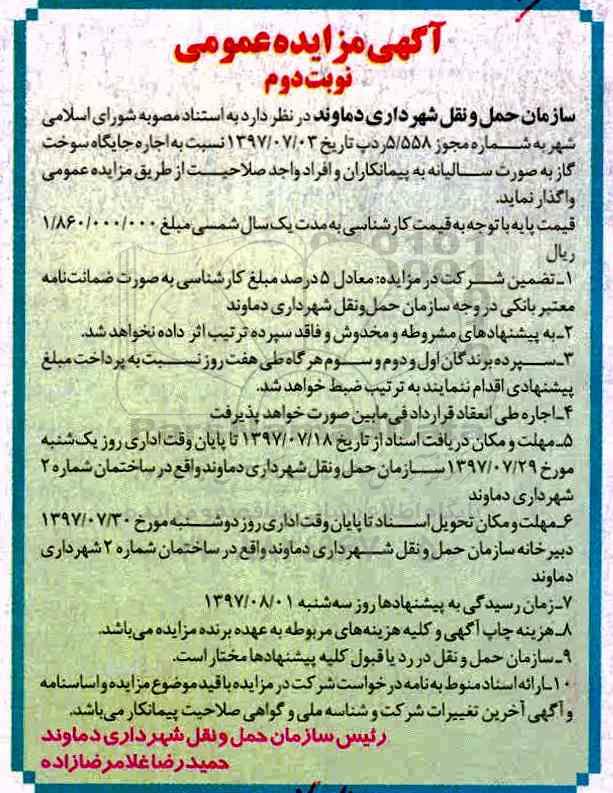 آگهی مزایده عمومی
نوبت دوم
سازمان حمل و نقل شهرداری دماوند در نظر دارد به استناد مصوبه شورای اسلامی
شهر به شماره مجوز ۵/۵۵۸ر‌دپ تاریخ ۱۳۹۷/۰۷/۰۳ نسبت به اجاره جایگاه سوخت
گاز به صورت سالیانه به پیمانکاران و افراد واجد صلاحیت از طریق مزایده عمومی
واگذار نماید.
قیمت پایه با توجه به قیمت کارشناسی به مدت یک سال شمسی مبلغ ۱/۸۶۰/۰۰۰/۰۰۰
ریال
۱ـ تضمین شرکت در مزایده: معادل ۵ درصد مبلغ کارشناسی به صورت ضمانت‌نامه
معتبر بانکی در وجه سازمان حمل‌ونقل شهرداری دماوند
۲ـ به پیشنهادهای مشروطه و مخدوش و فاقد سپرده ترتیب اثر داده نخواهد شد.
۳ـ سپرده برندگان اول و دوم و سوم هرگاه طی هفت روز نسبت به پرداخت مبلغ
پیشنهادی اقدام ننمایند به ترتیب ضبط خواهد شد.
۴ـ اجاره طی انعقاد قرارداد فی‌مابین صورت خواهد پذیرفت
۵ـ مهلت و مکان دریافت اسناد از تاریخ ۱۳۹۷/۰۷/۱۸ تا پایان وقت اداری روز یک‌شنبه
مورخ ۱۳۹۷/۰۷/۲۹ سازمان حمل و نقل شهرداری دماوند واقع در ساختمان شماره ۲
شهرداری دماوند
۶ـ مهلت و مکان تحویل اسناد تا پایان وقت اداری روز دوشنبه مورخ ۱۳۹۷/۰۷/۳۰
دبیرخانه سازمان حمل و نقل شهرداری دماوند واقع در ساختمان شماره ۲ شهرداری
دماوند
۷ـ زمان رسیدگی به پیشنهادها روز سه‌شنبه ۱۳۹۷/۰۸/۰۱
۸ـ هزینه چاپ آگهی و کلیه هزینه‌های مربوطه به عهده برنده مزایده می‌باشد.
۹ـ سازمان حمل و نقل در رد یا قبول کلیه پیشنهادها مختار است.
۱۰ـ ارائه اسناد منوط به نامه درخواست شرکت در مزایده با قید موضوع مزایده و اساسنامه
و آگهی آخرین تغییرات شرکت و شناسه ملی و گواهی صلاحیت پیمانکار می‌باشد.
رئیس سازمان حمل و نقل شهرداری دماوند
حمیدرضا غلامرضازاده